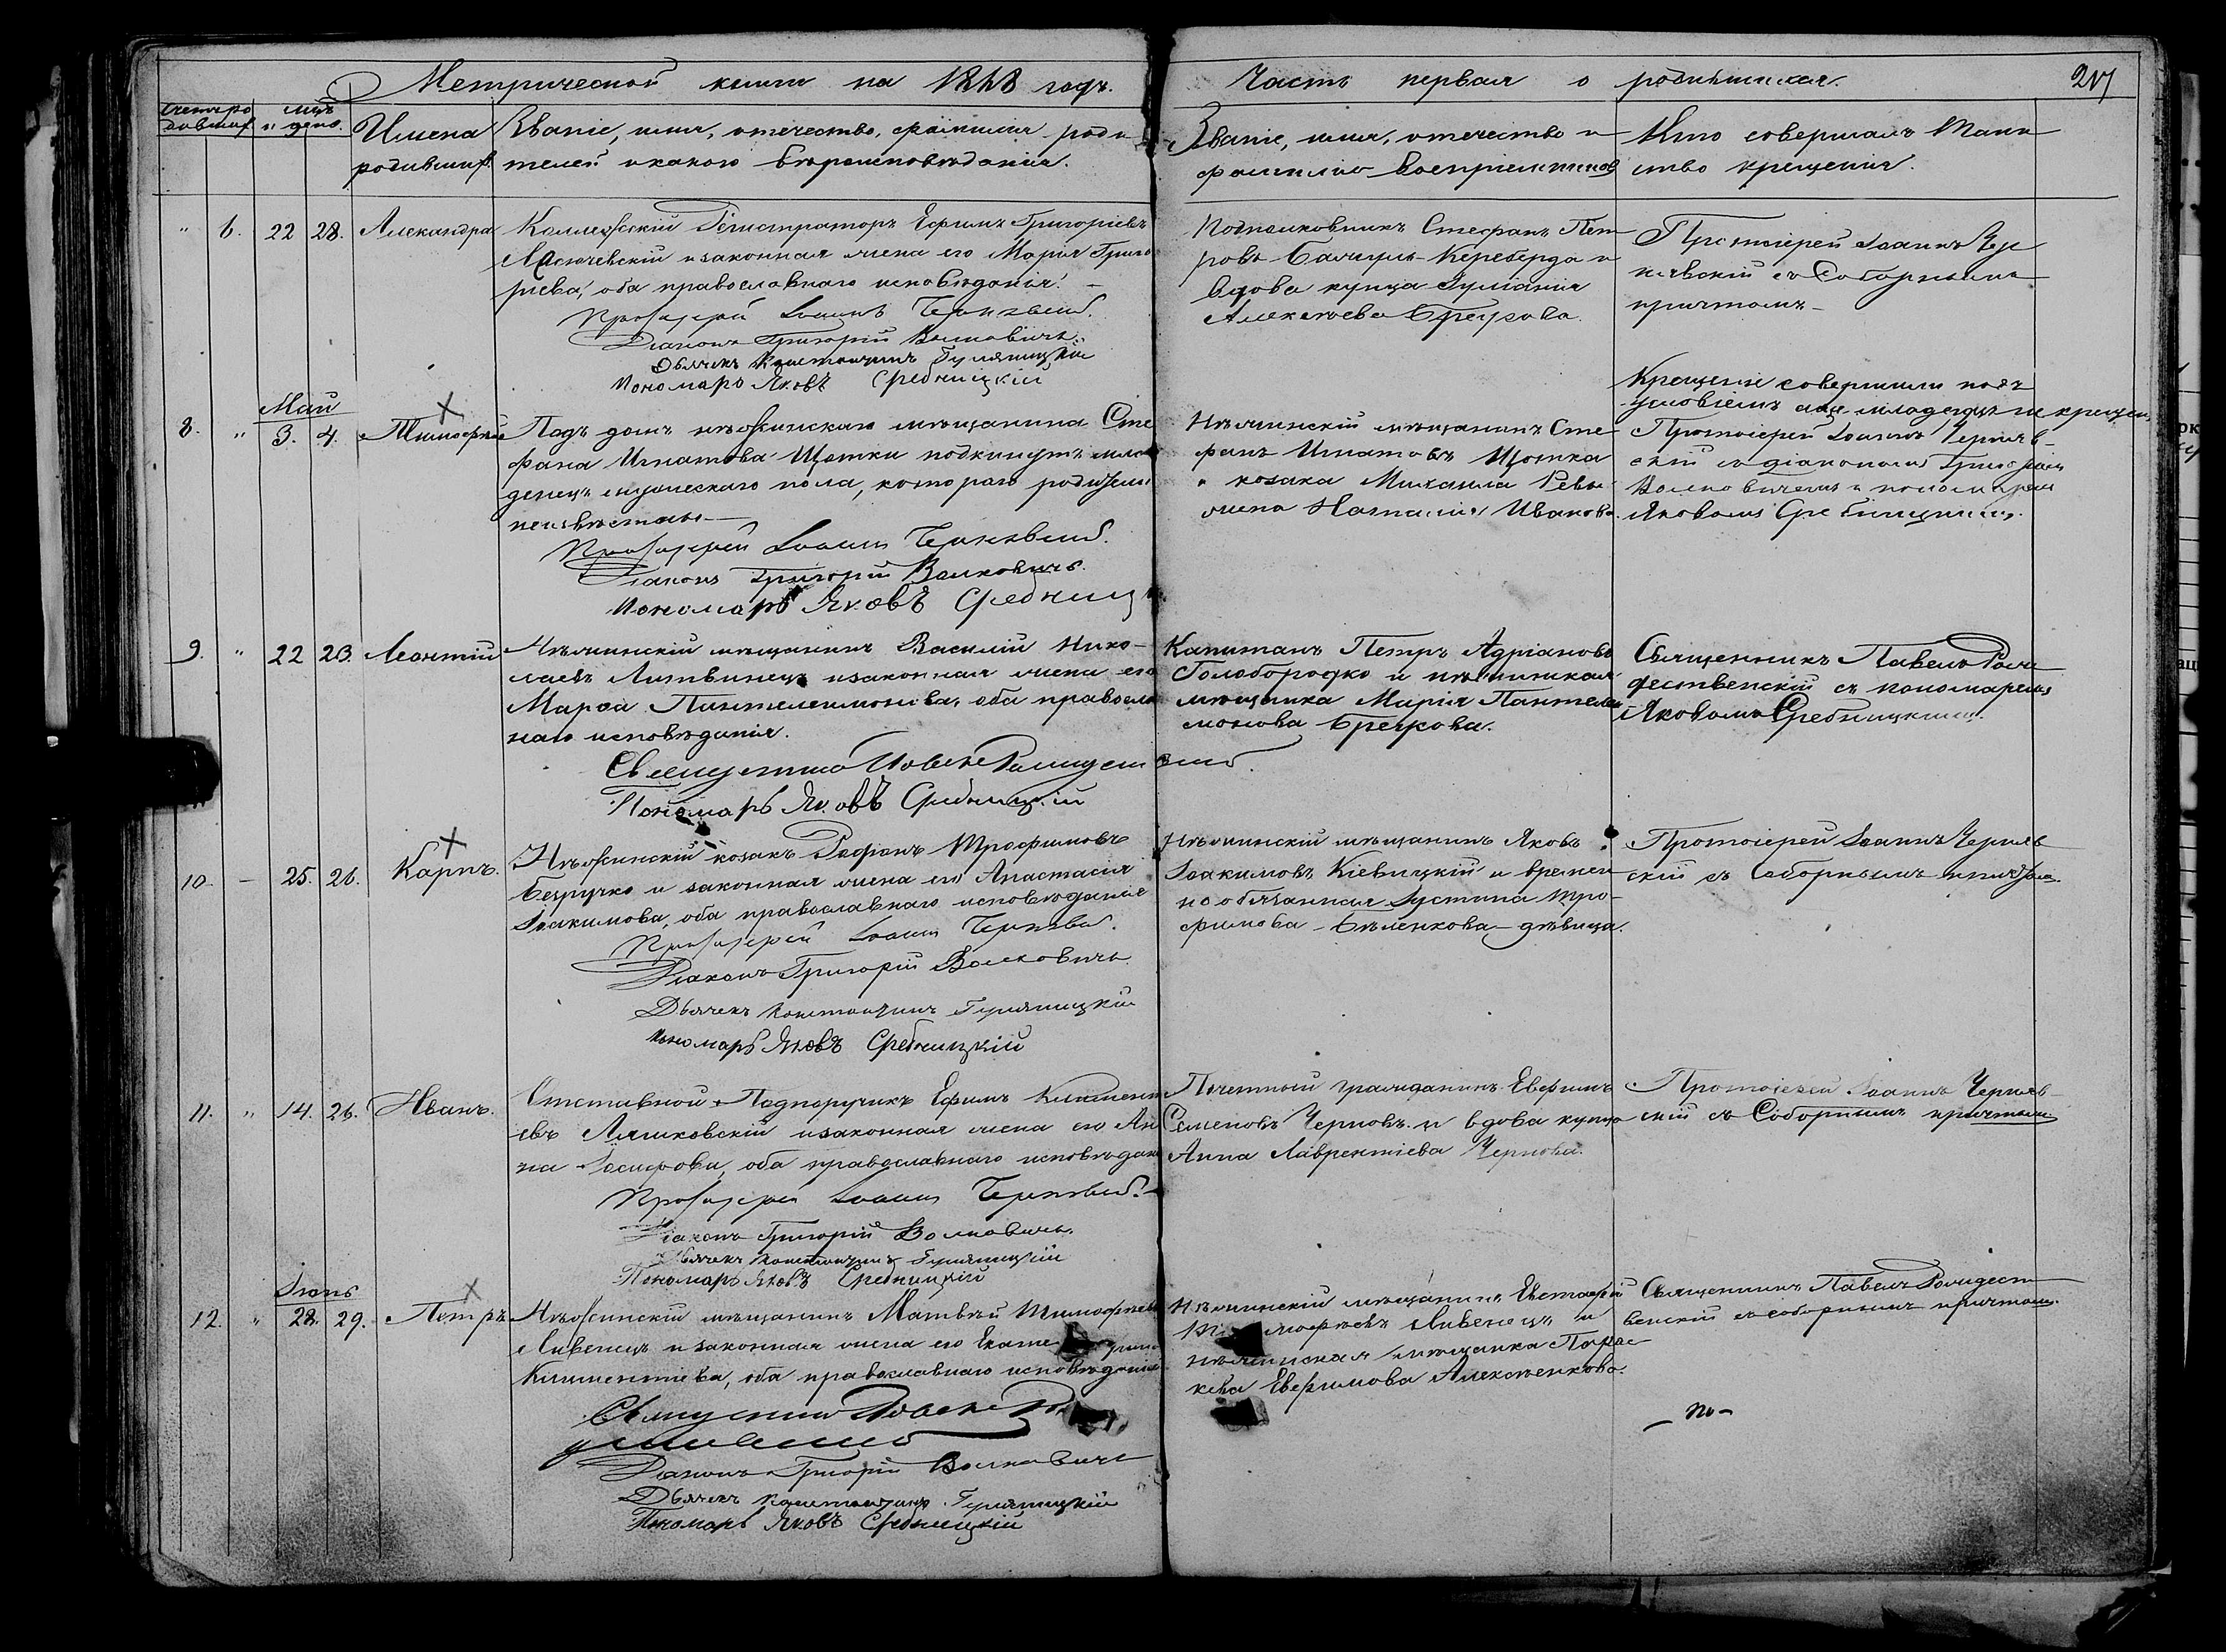 Метрической книги на 1868 годъ.
Часть первая о родившихся.
217
Счетъ родивших.
мцъ и день.
Имена родивших.
Званіе, имя, отечество, фамилія роди
телей и какого вѣроисповѣданія.
Званіе, имя, отечество и
фамилію воспріемниковъ
Кто совершалъ Таин
ство крещенія.
" 6. 22 28. Александра
Коллежскій Регистраторъ Ефимъ Григоріевъ
и законная жена его Марія Григо
рьева, оба православнаго исповѣданія. –
Протоіерей Іоаннъ Чернявскій.
Діаконъ Григорій Волковичъ.
Дьячекъ Константинъ
Пономарь Яковъ Сребницкій
Подполковникъ Стефанъ Пет
ровъ Кереберда и
вдова купца Іуліанія
Алексѣева Бречкова.
Протоіерей Іоаннъ Чер
нявскій съ Соборнымъ
причтомъ –
Май
8. " 3. 4. Тимофей
Подъ домъ нѣжинскаго мѣщанина Сте
фана Игнатова Щотки подкинутъ мла
денецъ мужескаго пола, котораго родители
неизвѣстны –
Протоіерей Іоаннъ Чернявскій.
Діаконъ Григорій Волковичъ.
Пономарь Яковъ Сребницк
Нѣжинскій мѣщанинъ Сте
фанъ Игнатовъ Щотка
и козака Михаила Ревы
жена Наталія Иванова.
Крещеніе совершили подъ
условіемъ аще младенецъ не крещен.
Протоіерей Іоаннъ Черняв
скій съ діакономъ Григоріемъ
Волковичемъ и пономаремъ
Яковомъ Сребницкимъ.
9. " 22 23. Леонтій
Нѣжинскій мѣщанинъ Василій Нико
лаевъ Литвинецъ и законная жена его
Марѳа Пантелеимонова, оба православ
наго исповѣданія.
Священникъ Павелъ Рождественскій.
Пономарь Яковъ Сребницкій
Капитанъ Петръ Адріановъ
Голобородко и нѣжинская
мѣщанка Марія Пантелеи
монова Бречкова.
Священникъ Павелъ Рож
дественскій съ пономаремъ
Яковомъ Сребницкимъ.
10. – 25. 26. Карпъ.
Нѣжинскій козакъ Трофимовъ
Безручко и законная жена его Анастасія
Іоакимова, оба православнаго исповѣданія
Протоіерей Іоаннъ Чернявскій.
Діаконъ Григорій Волковичъ
Дьячекъ Константинъ
Пономарь Яковъ Сребницкій
Нѣжинскій мѣщанинъ Яковъ
Іоакимовъ Кіевицкій и времен
но обязанная Іустина Тро
фимова Бѣленкова – дѣвица.
Протоіерей Іоаннъ Черняв
скій съ Соборнымъ причтом.
11. " 14. 26. Иванъ.
Отставной Подпоручикъ Ефимъ Климент
евъ Лишковскій и законная жена его Ан
на Іосифова, оба православнаго исповѣдан
Протоіерей Іоаннъ Чернявскій. –
Діаконъ Григорій Волковичъ.
Дьячекъ Константинъ
Пономарь Яковъ Сребницкій
Почетный гражданинъ Евфимъ
Семеновъ Черновъ и вдова купца
Анна Лаврентіева Чернова.
Протоіерей Іоаннъ Черняв
скій съ Соборнымъ причтом.
Іюнь
12. " 28. 29. Петръ
Нѣжинскій мѣщанинъ Матвѣй Тимофѣевъ
Ливенецъ и законная жена его Екате рина
Климентіева, оба православнаго исповѣданія
Священникъ Павелъ Рож
дественскій
Діаконъ Григорій Волковичъ
Дьячекъ Константинъ
Пономарь Яковъ Сребницкій
Нѣжинскій мѣщанинъ Евстафій
Ти мофѣевъ Ливенецъ и
нѣжинская мѣщанка Парас
кева Евфимова Алексѣенкова.
Священникъ Павелъ Рождест
венскій съ соборнымъ причтом.